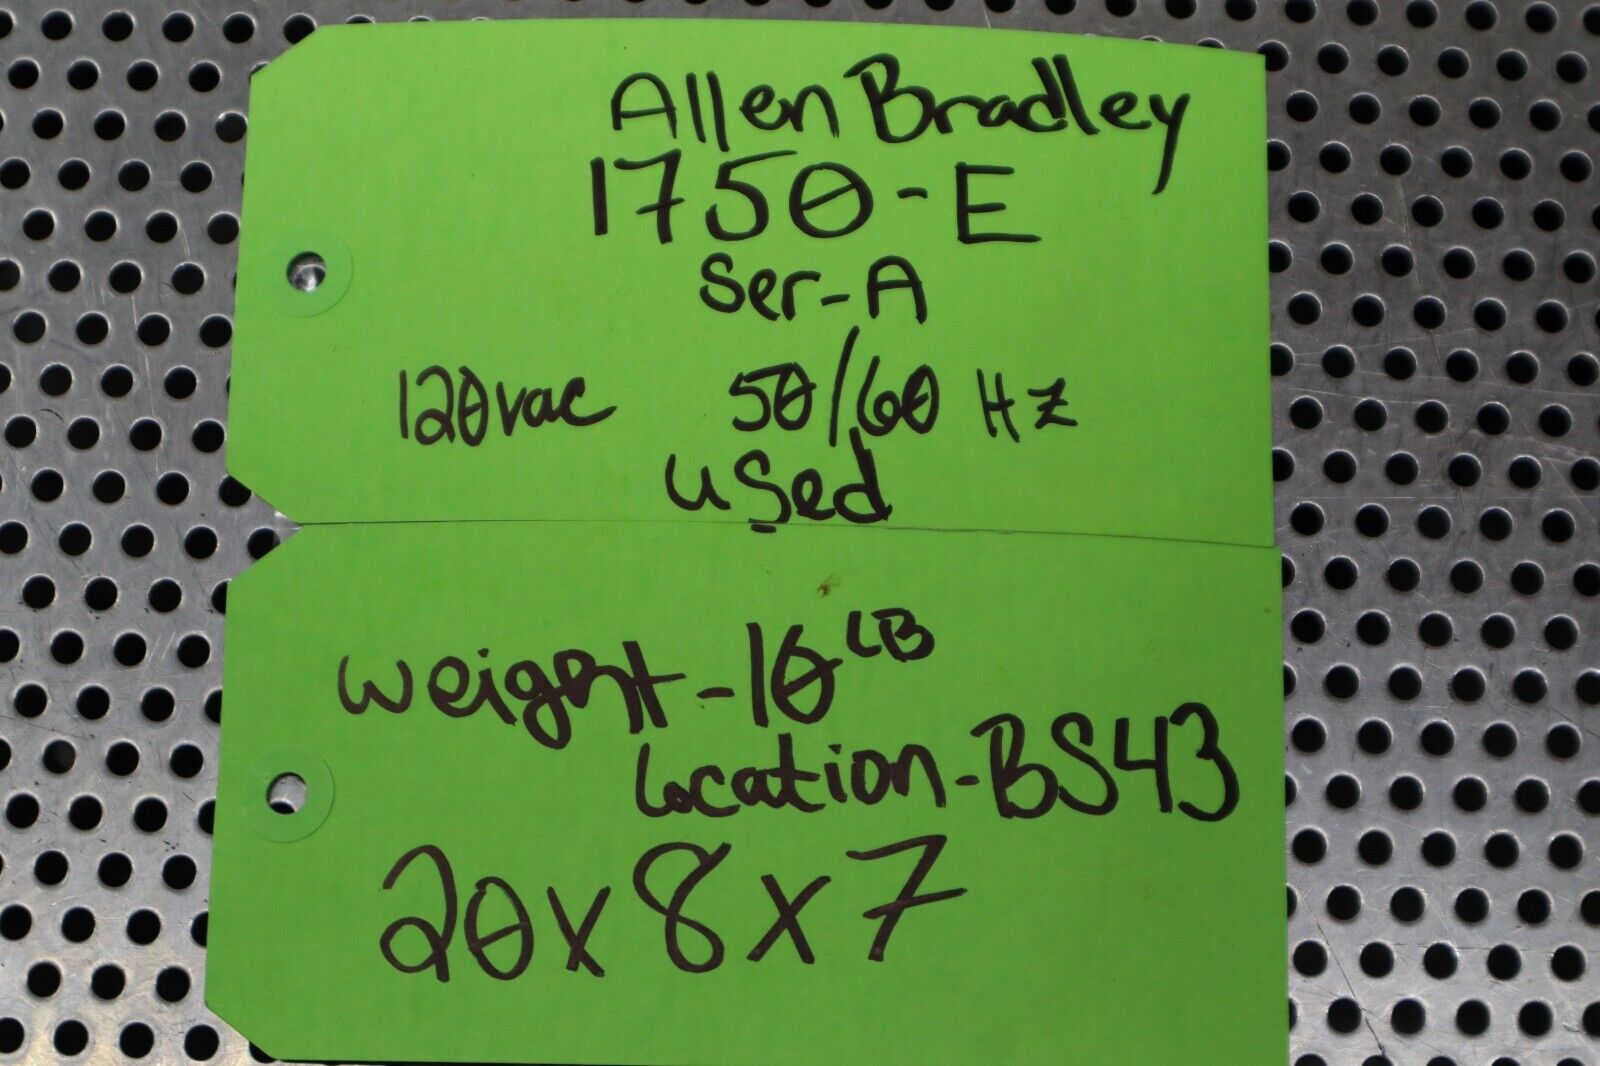 Allen Bradley
1750-E
Ser-A
120vac 50/60 Hz
used
weight-10 LB
Location-BS43
20x8x7